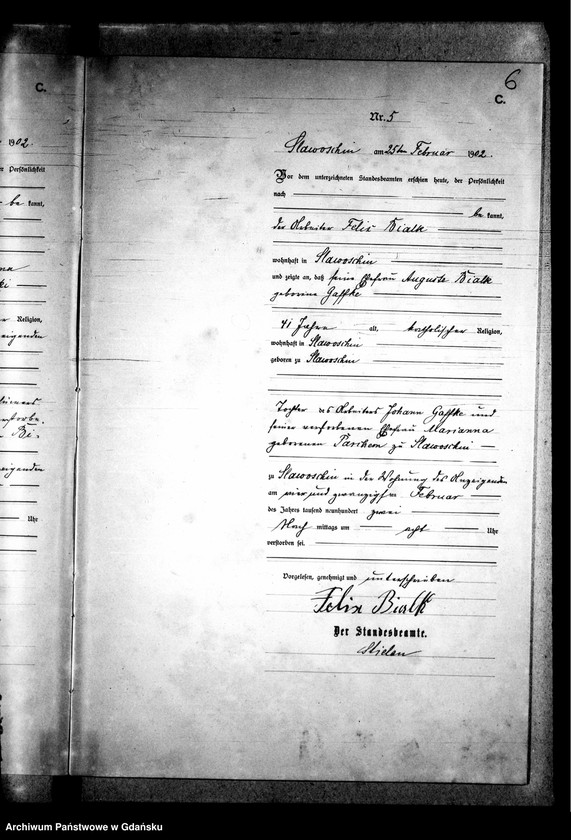 C.
6
C.
Nr. 5
1902.
Slawoschin am 25ten Februar 1902.
Persönlichkeit
Vor dem unterzeichneten Standesbeamten erschien heute, der Persönlichkeit
nach
be kannt,
be kannt,
der Arbeiter Felix Bialk
wohnhaft in Slawoschin
und zeigte an, daß seine Ehefrau Auguste Bialk
geborene Gaffke
Religion,
41 Jahre alt, katholischer Religion,
eigenden
wohnhaft in Slawoschin
geboren zu Slawoschin
Tochter des Arbeiters Johann Gaffke und
seiner verstorbenen Ehefrau Marianna
geborenen zu Slawoschin
eigenden
zu Slawoschin in der Wohnung des Anzeigenden
am vier und zwanzigsten Februar
des Jahres tausend neunhundert zwei
Uhr
Nach mittags um acht Uhr
verstorben sei.
Vorgelesen, genehmigt und unterschrieben
Felix Bialk
Der Standesbeamte.
Archiwum Państwowe w Gdańsku